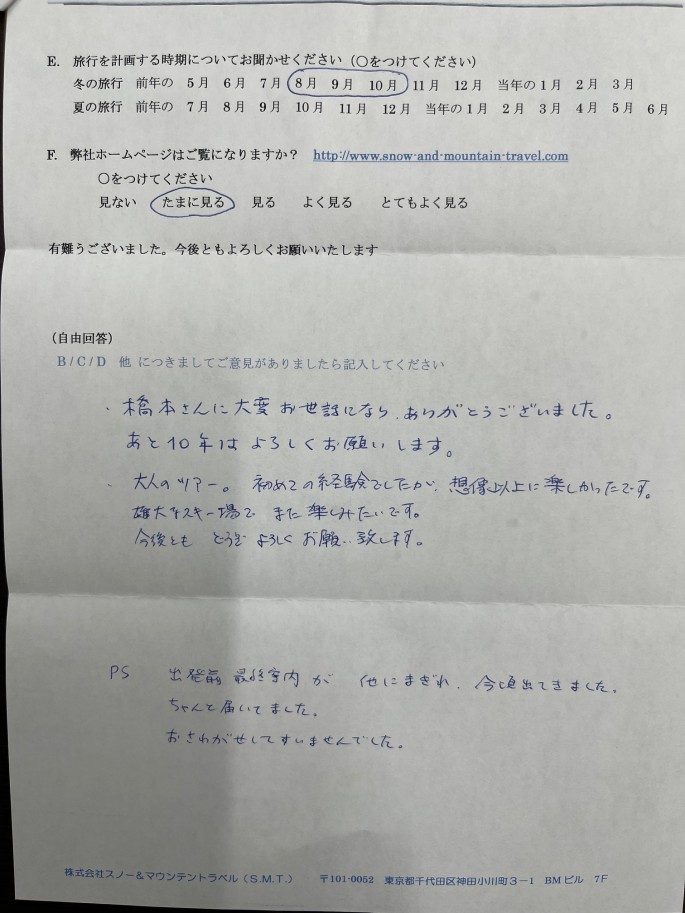 E. 旅行を計画する時期についてお聞かせください（○をつけてください）
冬の旅行 前年の 5月 6月 7月 8月 9月 10月 11月 12月 当年の1月 2月 3月
夏の旅行 前年の 7月 8月 9月 10月 11月 12月 当年の1月 2月 3月 4月 5月 6月
F. 弊社ホームページはご覧になりますか？ http://www.snow-and-mountain-travel.com
○をつけてください
見ない たまに見る 見る よく見る とてもよく見る
有難うございました。今後ともよろしくお願いいたします
（自由回答）
B / C / D 他 につきましてご意見がありましたら記入してください
・橋本さんに大変お世話になり、ありがとうございました。
あと10年はよろしくお願いします。
・大人のツアー。初めての経験でしたが、想像以上に楽しかったです。
雄大なスキー場で また楽しみたいです。
今後とも どうぞ よろしく お願い致します。
PS 出発前 最終案内が 他にまぎれ、今頃出てきました。
ちゃんと届いてました。
おさわがせしてすいませんでした。
株式会社スノー＆マウンテントラベル（S.M.T.） 〒101-0052 東京都千代田区神田小川町3－1 BMビル 7F